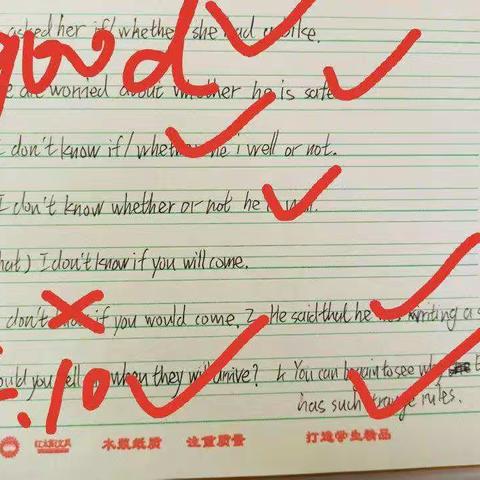 asked her if/whether she had a bike.
good
are worried about whether he is safe
I don't know if/whether he i well or not.
I don't know whether or not he is well.
hat) I don't know if you will come.
don't if you would come. 2 He said that he was writing a s
ould you tell when they will arrive? 4 You can to see why
has such strange rules.
:.10
木浆纸质 注重质量 打造学生精品